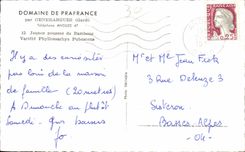 DOMAINE DE PRAFRANCE
par GENERARGUES (Gard)
Téléphone ANDUZE 47
12. Jeunes pousses de Bambous
Variété Phyllostachys Pubescens
Il y a des curiosités
pas loin de la maison
de famille. (20 mètres)
A Dimanche ou plutôt
Samedi. Gros baisers
Jo
Mr et Me Jean
3 Rue Deleuze 3
Sisteron
Basses Alpes
04
0,25